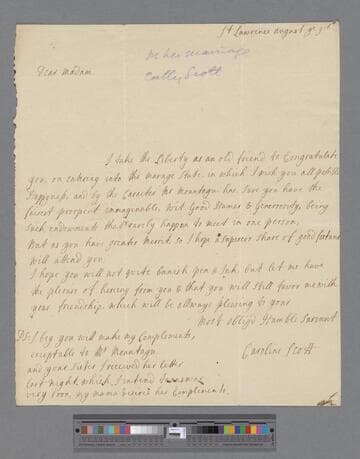 St Lawrence August ye
on her marriage
Cattly Scott
Dear Madam
I take the Liberty as an old friend to Congratulate
you, on entering into the marage State. in which I wish you all
Happyness, and by the Caracter Mr Mountagu has Sure you have the
fairest prospect immaginable, Wit Good Humer & Generossity, being
Such endowments that rarely happen to meet in one person,
But as you have greater Merrit, so I hope a Superer Share of good fortune
will attend you
I hope you will not quite banish pen & Ink, but let me have
the plesure of hereing from you & that you will Still favor me with
your friendship, which will be allways plesing to your
Most obliged Humble Servant
Caroline Scott
PS: I beg you will make my Complements,
exceptable to Mr Mountagu
and your Sister, I received her letter
last night, which I intend
very soon, my mama her Complements.